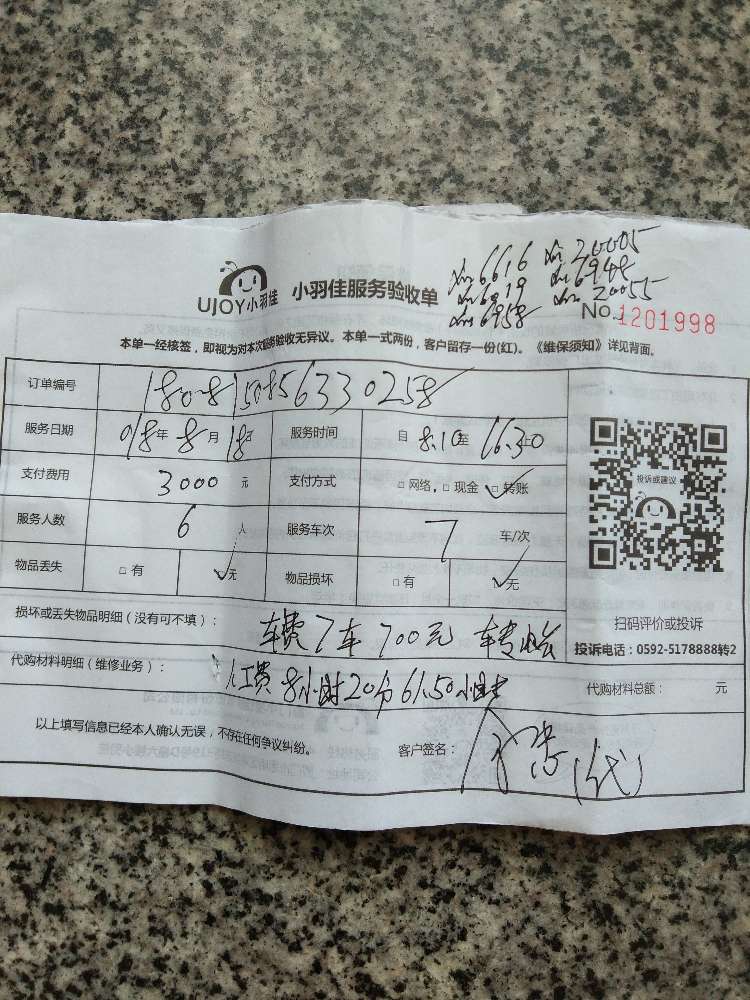 UJOY小羽佳 小羽佳服务验收单
6616 20005
6919 6948
6958 20055
No.1201998
本单一经核签，即视为对本次服务验收无异议。本单一式两份，客户留存一份(红)。《维保须知》详见背面。
订单编号 1808150856330258
服务日期 018年8月18日 服务时间 自 8:10至 16:30
支付费用 3000 元 支付方式 □网络，□现金 ✓转账
服务人数 6 人 服务车次 7 车/次
物品丢失 □有 ✓无 物品损坏 □有 ✓无
投诉或建议
扫码评价或投诉
投诉电话：0592-5178888转2
损坏或丢失物品明细（没有可不填）： 车费7车700元
代购材料明细（维修业务）： 人工费8小时20分 6人50小时
代购材料总额： 元
以上填写信息已经本人确认无误，不存在任何争议纠纷。 客户签名： (代)